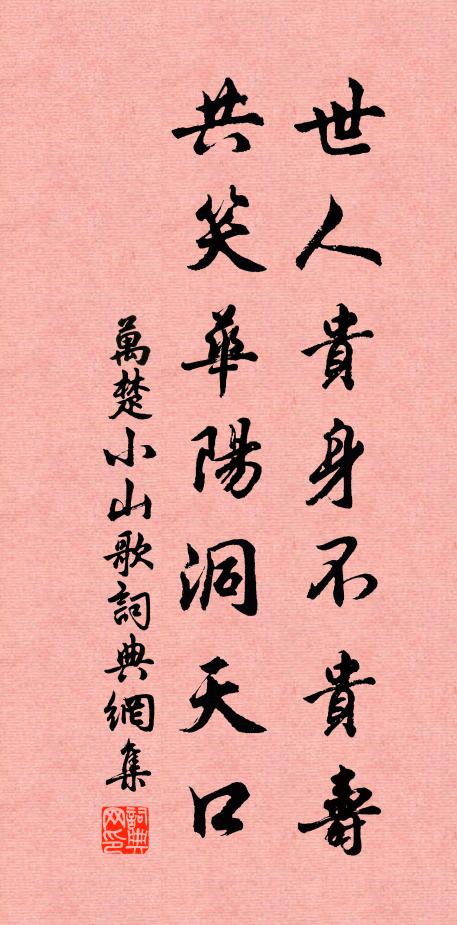 世人貴身不貴壽
共笑華陽洞天口
萬楚小山歌詞典網集
詞典网印